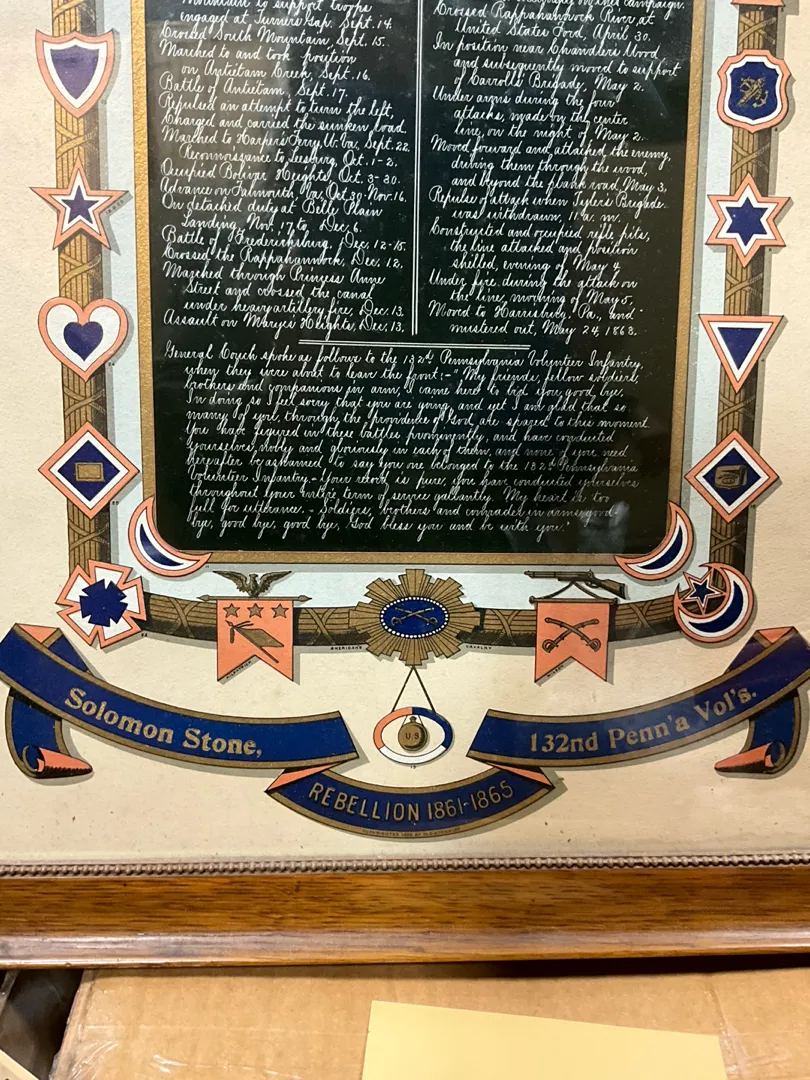 Mountain to support troops
engaged at Turners Gap. Sept. 14.
Crossed South Mountain, Sept. 15.
Marched to and took position
on Antietam Creek, Sept. 16.
Battle of Antietam Sept. 17.
Repulsed an attempt to turn the left,
Charged and carried the sunken road.
Marched to Harpers Ferry W. Va. Sept. 22.
Reconnoissance to Leesburg Oct. 1-2.
Occupied Bolivar Heights, Oct. 3-30.
Advance on Falmouth, Va. Oct. 30-Nov. 16.
On detached duty at Belle Plain
Landing, Nov. 17 to Dec. 6.
Battle of Fredericksburg, Dec. 12-15.
Crossed the Rappahannock, Dec. 12,
Marched through Princess Anne
Street and crossed the canal
under heavy artillery fire, Dec. 13.
Assault on Marye's Heights, Dec. 13.
on this campaign.
Crossed Rappahannock River at
United States Ford, April 30.
In position near Chandlers Wood
and subsequently moved to support
of Carrolls' Brigade, May 2.
Under arms during the four
attacks, made by the center
line, on the night of May 2.
Moved forward and attacked the enemy,
driving them through the wood,
and beyond the plank road, May 3,
Repulse of attack when Tylers Brigade
was withdrawn, 11 a. m.
Constructed and occupied rifle pits,
the line attacked and position
shelled, evening of May 4
Under fire during the attack on
the line, morning of May 5,
Moved to Harrisburg, Pa., and
mustered out, May 24, 1863.
General Couch spoke as follows to the 132nd Pennsylvania Volunteer Infantry,
when they were about to leave the front:-" My friends, fellow soldiers,
brothers and companions in arm, I came here to bid you good bye.
In doing so I feel sorry that you are going, and yet I am glad that so
many of you, through the providence of God, are spared to this moment.
You have figured in these battles prominently, and have conducted
yourselves nobly and gloriously in each of them, and none of you need
hereafter be ashamed to say you one belonged to the 132nd Pennsylvania
Volunteer Infantry.- Your record is pure, you have conducted yourselves
throughout your entire term of service gallantly. My heart is too
full for utterance. - Soldiers, brothers and comrades in arms good-
bye, good bye, good bye, God bless you and be with you."
SHERIDAN'S CAVALRY
U S
Solomon Stone,
132nd Penn'a Vol's.
REBELLION 1861-1865